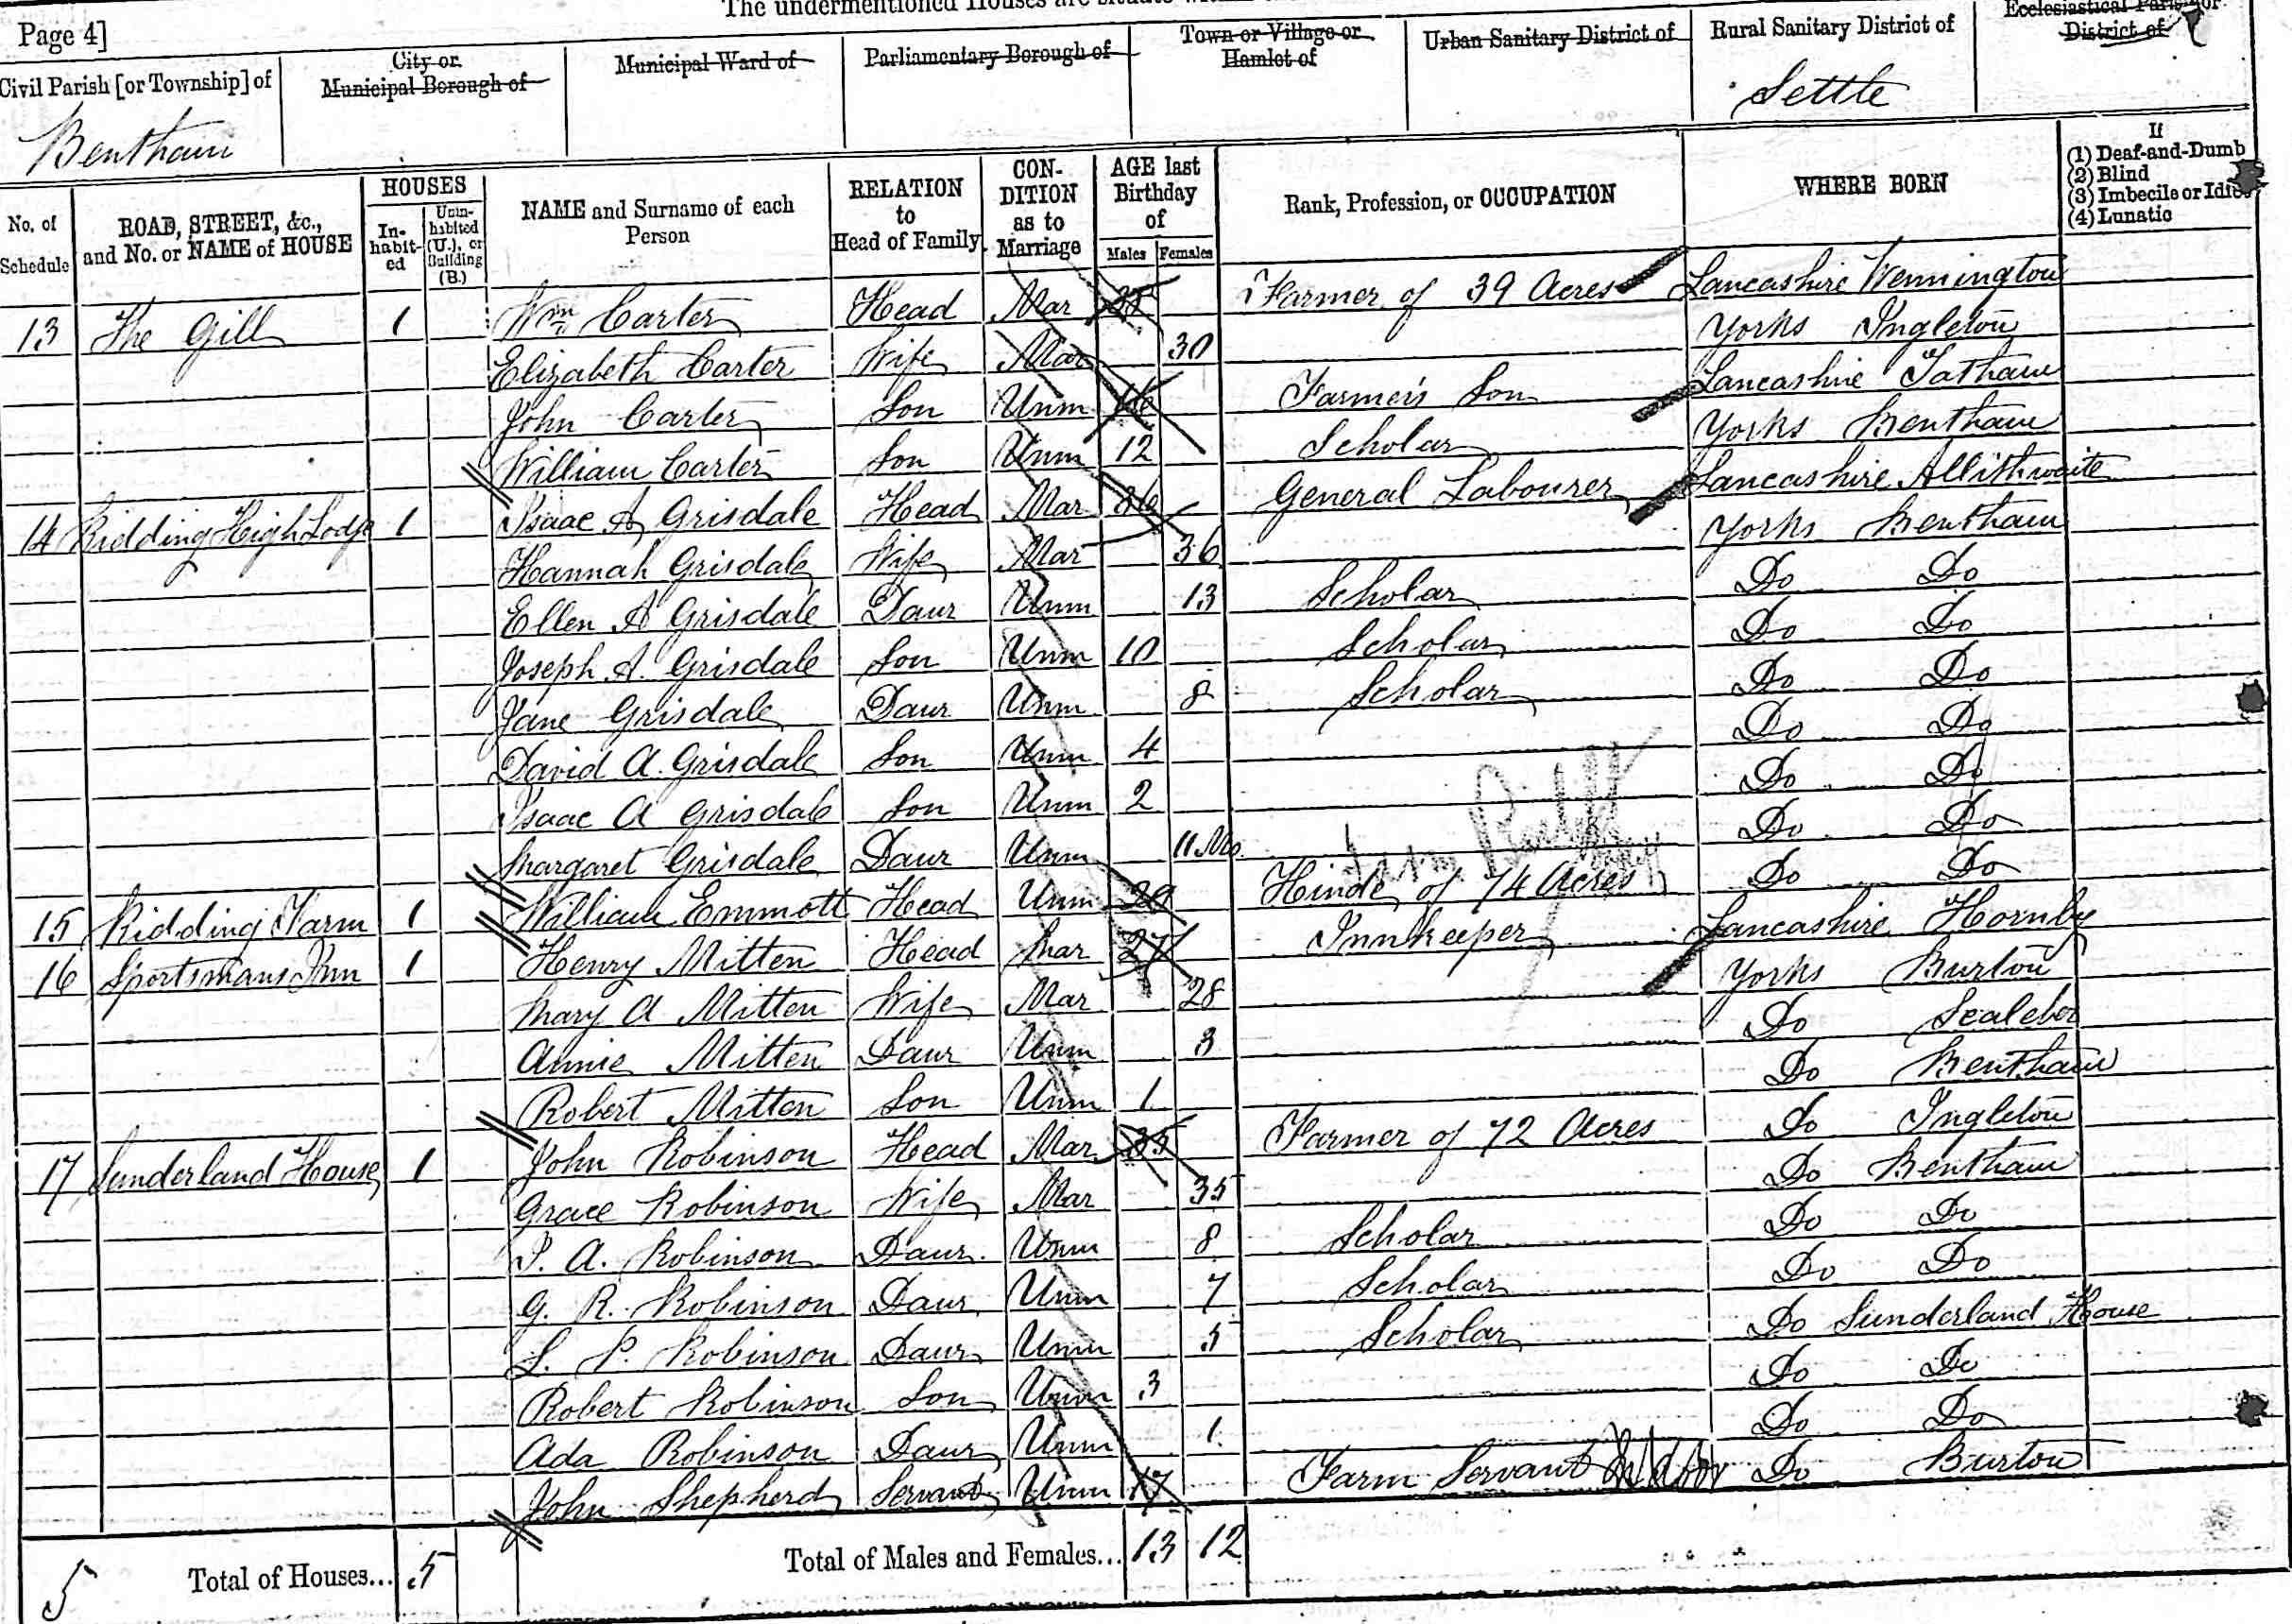 The undermentioned Houses are situate
Page 4]
Civil Parish [or Township] of
City or
Municipal Borough of
Municipal Ward of
Parliamentary Borough of
Town or Village or
Hamlet of
Urban Sanitary District of
Rural Sanitary District of
Ecclesiastical Parish or
District of
Bentham
Settle
No. of
Schedule
ROAD, STREET, &c.,
and No. or NAME of HOUSE
HOUSES
In-
habit-
ed
Unin-
habited
(U.), or
Building
(B.)
NAME and Surname of each
Person
RELATION
to
Head of Family
CON-
DITION
as to
Marriage
AGE last
Birthday
of
Males Females
Rank, Profession, or OCCUPATION
WHERE BORN
If
(1) Deaf-and-Dumb
(2) Blind
(3) Imbecile or Idiot
(4) Lunatic
13 The Gill 1 Wm Carter Head Mar Farmer of 39 Acres Lancashire Wennington
Elizabeth Carter Wife Mar 30 Yorks Ingleton
John Carter Son Unm 16 Farmer's Son Lancashire Tatham
William Carter Son Unm 12 Scholar Yorks Bentham
14 Ridding High Lodge 1 Isaac A Grisdale Head Mar 36 General Labourer Lancashire Allithwaite
Hannah Grisdale Wife Mar 36 Yorks Bentham
Ellen A Grisdale Daur Unm 13 Scholar Do Do
Joseph A. Grisdale Son Unm 10 Scholar Do Do
Jane Grisdale Daur Unm 8 Scholar Do Do
David A. Grisdale Son Unm 4 Do Do
Isaac A Grisdale Son Unm 2 Do Do
Margaret Grisdale Daur Unm 11 Mo Do Do
15 Ridding Farm 1 William Emmott Head Unm 29 Hinde of 74 Acres Do Do
16 Sportsmans Inn 1 Henry Mitten Head Mar 27 Innkeeper Lancashire Hornby
Mary A Mitten Wife Mar 28 Yorks Burton
Annie Mitten Daur Unm 3 Do Scaleber
Robert Mitten Son Unm 1 Do Bentham
17 Sunderland House 1 John Robinson Head Mar 35 Farmer of 72 Acres Do Ingleton
Grace Robinson Wife Mar 35 Do Bentham
A. Robinson Daur. Unm 8 Scholar Do Do
G. R. Robinson Daur Unm 7 Scholar Do Do
L. P. Robinson Daur Unm 5 Scholar Do Sunderland House
Robert Robinson Son Unm 3 Do Do
Ada Robinson Daur Unm 1 Do Do
John Shepherd Servant Unm 17 Farm Servant Indoor Do Burton
5 Total of Houses... 5 Total of Males and Females... 13 12